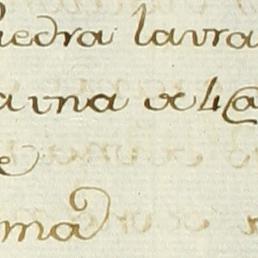 iedra lavra
a vna de 4@
e
ma